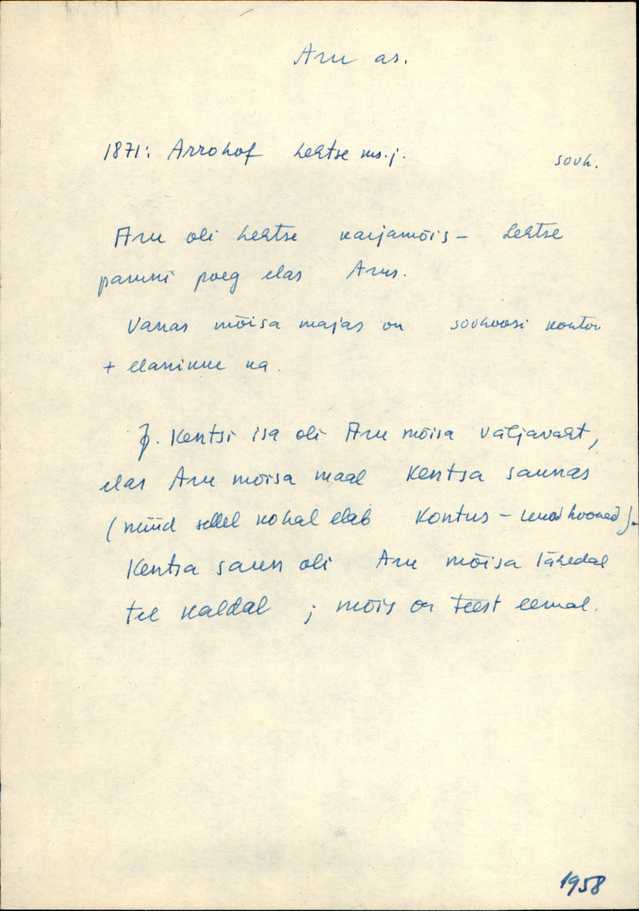 Aru as.
1871: Arrohof Lehtse ms.j. sovh.
Aru oli Lehtse karjamõis – Lehtse
paruni poeg elas Arus.
Vanas mõisa majas on sovhoosi kontor
+ elanikke ka.
J. Kentsi isa oli Aru mõisa väljavaht,
elas Aru mõisa maal Kentsa saunas
(nüüd sellel kohal elab Kontus – uued hooned).
Kentsa saun oli Aru mõisa lähedal
tee kaldal ; mõis on teest eemal.
1958